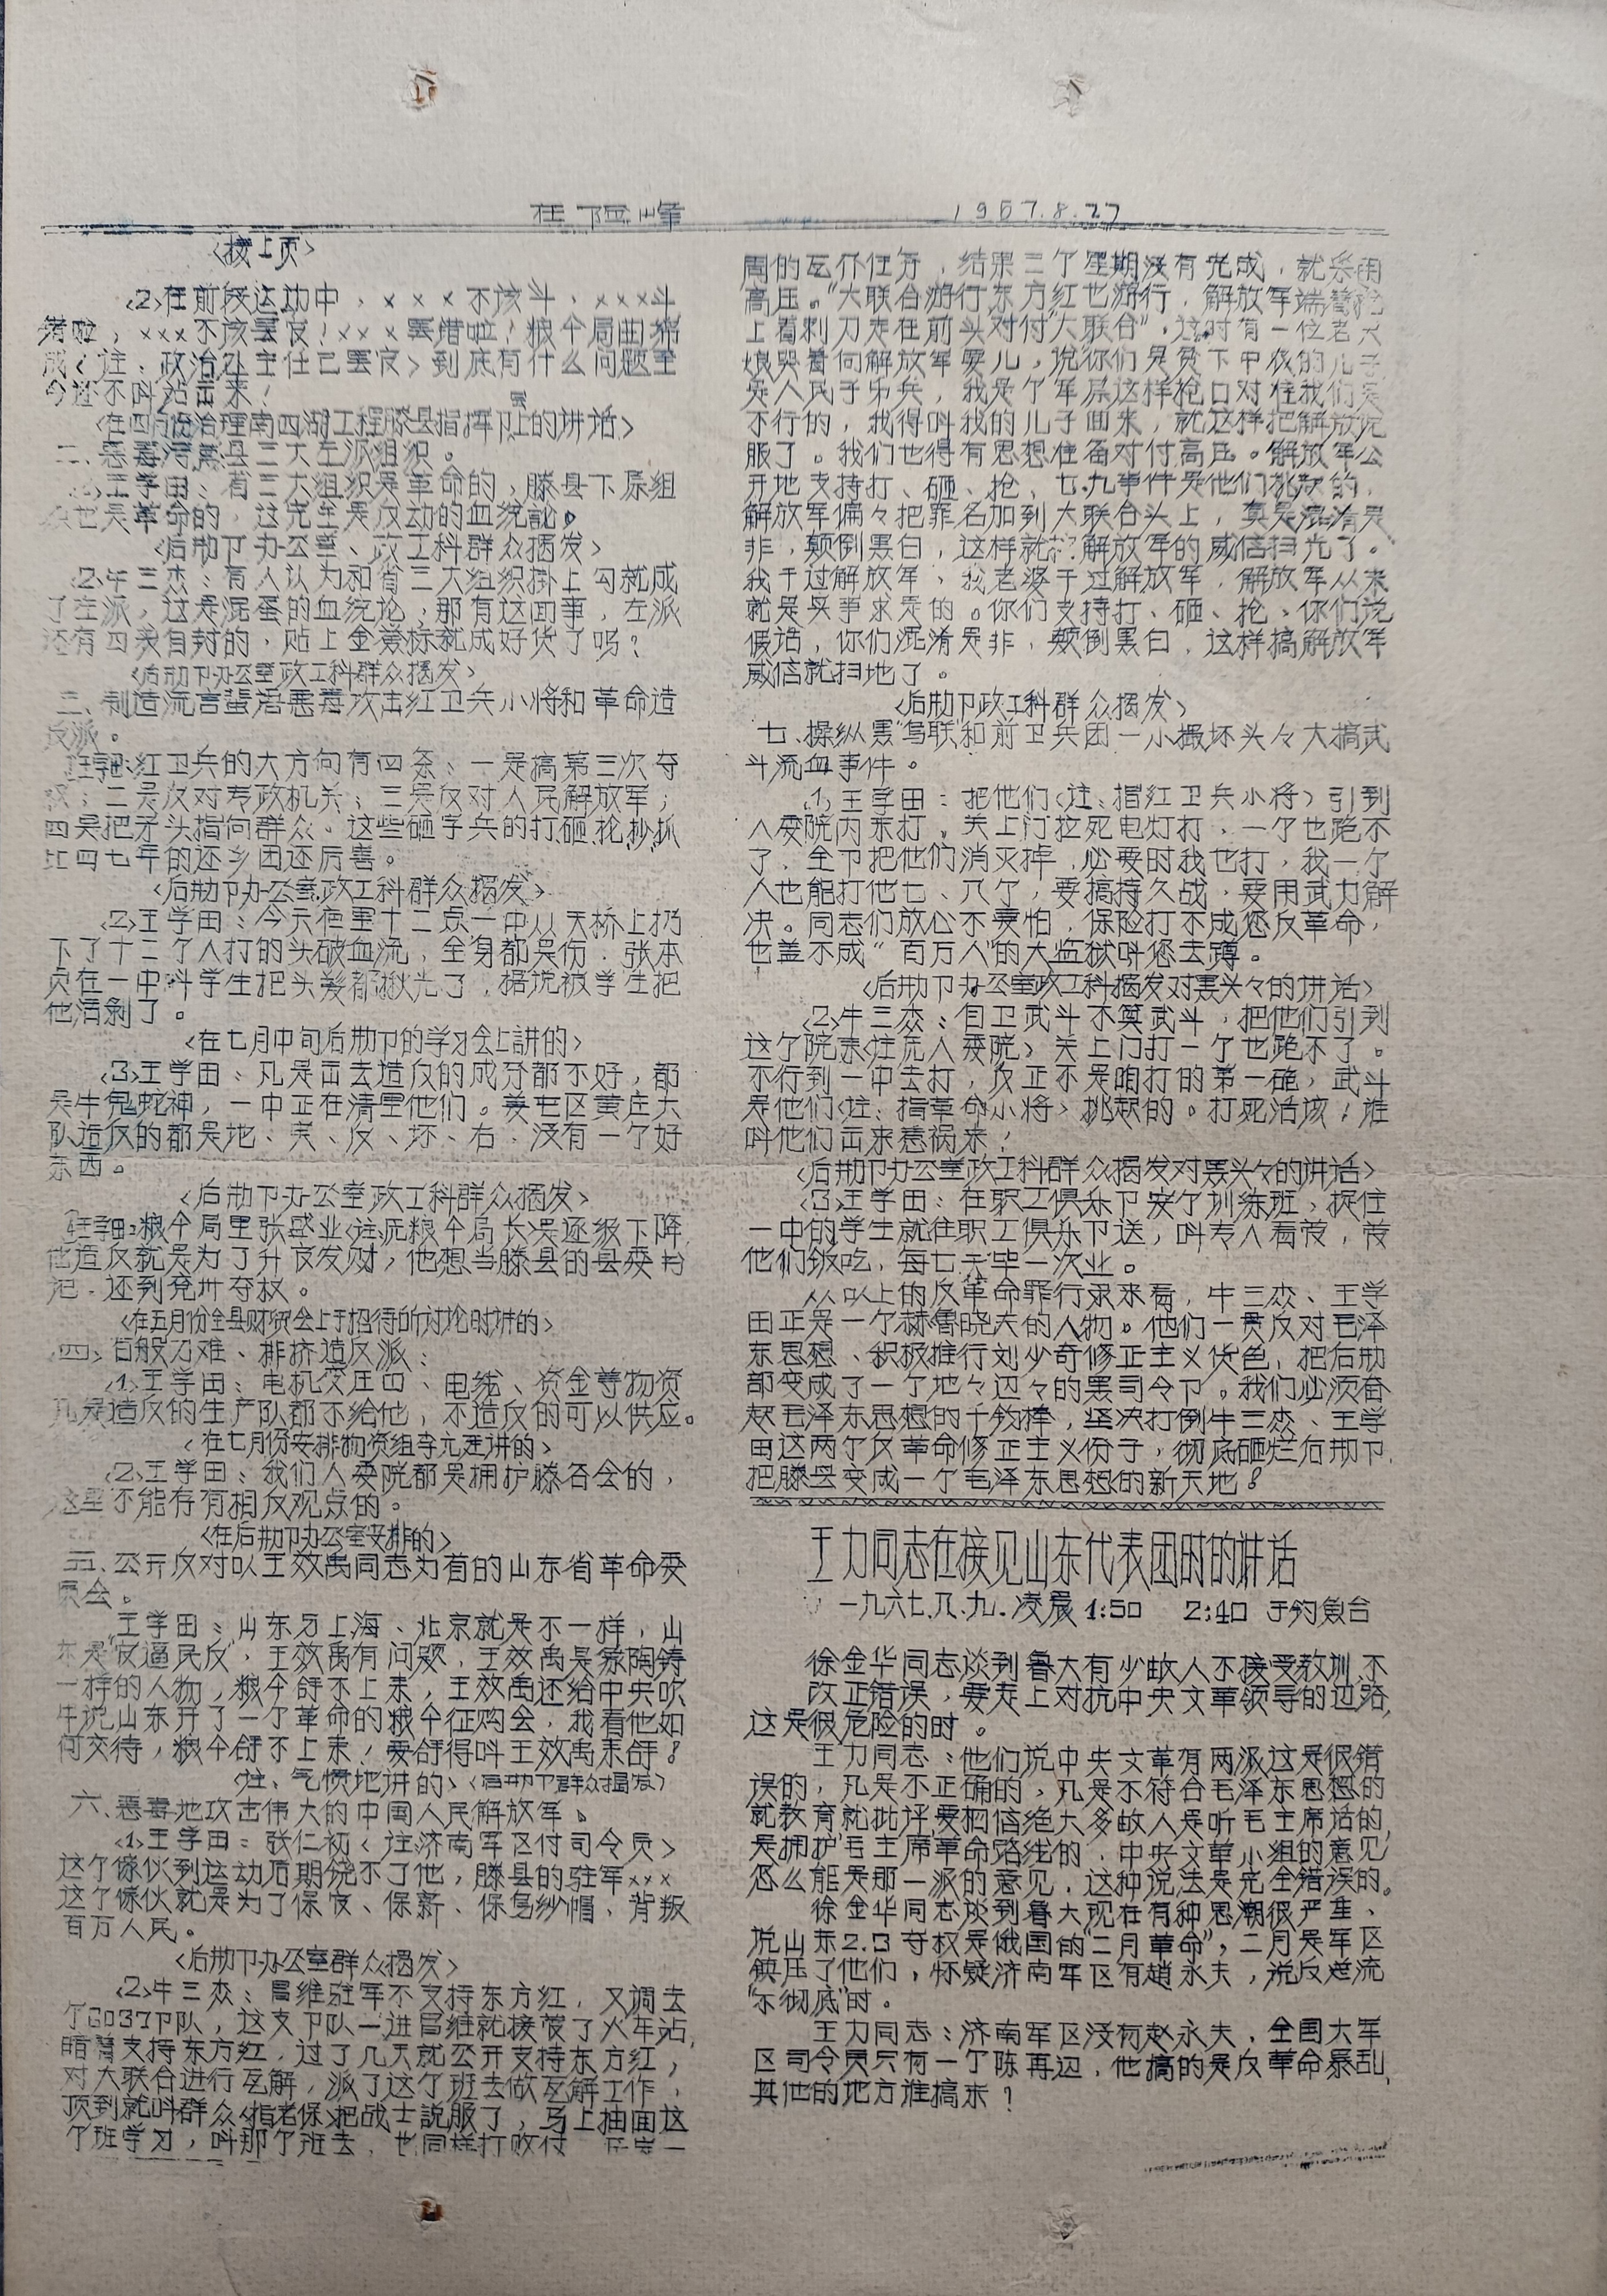 在险峰 1967.8.27
<接上页>
<2>在前段运动中，×××不该斗，×××斗
错啦，×××不该罢官！×××罢错啦！粮食局曲绵
成<注：政治处主任已罢官>到底有什么问题至
今还不叫站出来！
<在四月份治理南四湖工程滕县指挥部里上的讲话>
二、恶毒污蔑县三大左派组织。
<1>王学田：省三大组织是革命的，滕县下属组
织也是革命的，这完全是反动的血统论。
<后勤部办公室、政工科群众揭发>
<2>牛三杰：有人认为和省三大组织掛上勾就成
了左派，这是混蛋的血统论，那有这回事，左派
还有四类自封的，贴上金蓥标就成好货了吗？
<后勤部办公室政工科群众揭发>
三、制造流言蜚语恶毒攻击红卫兵小将和革命造
反派。
王学田：红卫兵的大方向有四条：一是搞第三次夺
权；二是反对专政机关；三是反对人民解放军；
四是把矛头指向群众。这些砸字兵的打砸抢抄抓
比四七年的还乡团还厉害。
<后勤部办公室政工科群众揭发>
<2>王学田：今天夜里十二点一中从天桥上扔
下了十二个人打的头破血流，全身都是伤．张本
贞在一中叫学生把头发都揪光了，据说被学生把
他活剥了。
<在七月中旬后勤部的学习会上講的>
<3>王学田：凡是出去造反的成分都不好，都
是牛鬼蛇神，一中正在清里他们。姜屯区黄庄大
队造反的都是地、夫、反、坏、右．没有一个好
东西。
<后勤部办公室政工科群众揭发>
王学田：粮食局里张盛业<注：原粮食局长>是逐级下降，
他造反就是为了升官发财，他想当滕县的县委书
记．还到兖州夺权。
<在五月份全县财贸会上于招待所讨论时讲的>
四、百般刁难、排挤造反派：
<1>王学田：电机变压四、电线、资金等物资
凡是造反的生产队都不给他，不造反的可以供应。
<在七月份安排物资组李元廷讲的>
<2>王学田：我们人委院都是拥护滕否会的，
这里不能存有相反观点的。
<在后勤部办公室安排的>
五、公开反对以王效禹同志为首的山东省革命委
员会。
王学田：山东另上海、北京就是不一样，山
东是“官逼民反”，王效禹有问题，王效禹是象陶铸
一样的人物，粮食舒不上来，王效禹还给中央吹
牛说山东开了一个革命的粮食征购会，我看他如
何交待，粮食舒不上来，要舒得叫王效禹来舒！
<注：气愤地讲的><后勤部群众揭发>
六、恶毒地攻击伟大的中国人民解放军。
<1>王学田：张仁初<注：济南军区付司令员>
这个傢伙到运动后期饶不了他，滕县的驻军×××
这个傢伙就是为了保官、保薪、保乌纱帽、背叛
百万人民。
<后勤部办公室群众揭发>
<2>牛三杰：昌维驻军不支持东方红，又调去
个6037部队，这支部队一进昌维就接管了火车站，
暗暗支持东方红，过了几天就公开支持东方红，
对大联合进行瓦解，派了这个班去做瓦解工作，
顶到就叫群众<指老保>把战士説服了，马上抽回这
个班学习，叫那个班去．也同样打败仗
周的瓦介任务，结果三个星期没有完成，就采用
高压。“大联合游行东方红也游行，解放军端着枪
上着刺刀走在前头对付“大联合”，这时有一位老大
娘哭着向解放军要儿，说你们是贫下中农的儿子
是人民子弟兵，我是个军属这样枪口对住我们是
不行的，我得叫我的儿子回来，就这样把解放说
服了。我们也得有思想准备对付高压。解放军公
开地支持打、砸、抢、七.九事件是他们挑起的，
解放军偏々把罪名加到大联合头上，真是混淆是
非，颠倒黑白，这样就把解放军的威信扫光了。
我干过解放军、我老婆干过解放军，解放军从来
就是实事求是的。你们支持打、砸、抢、你们说
假话，你们混淆是非，颠倒黑白，这样搞解放军
威信就扫地了。
<后勤部政工科群众揭发>
七、操纵黑“鸟联和前卫兵团一小撮坏头々大搞武
斗流血事件。
<1>王学田：把他们<注：指红卫兵小将>引到
人委院内来打，关上门拉死电灯打，一个也跑不
了，全部把他们消灭掉，必要时我也打，我一个
人也能打他七、八个，要搞持久战，要用武力解
决。同志们放心不要怕，保险打不成您反革命，
也盖不成“百万人”的大监狱叫您去蹲。
<后勤部办公室政工科揭发对黑头々的讲话>
<2>牛三杰：自卫武斗不算武斗，把他们引到
这个院来<注：原人委院>关上门打一个也跑不了。
不行到一中去打，反正不是咱打的第一砲，武斗
是他们<注：指革命小将>挑起的。打死活该，谁
叫他们出来惹祸来！
<后勤部办公室政工科群众揭发对黑头々的讲话>
<3>王学田：在职工俱乐部安个训练班，捉住
一中的学生就往职工俱乐部送，叫专人看管，管
他们饭吃，每七天毕一次业。
从以上的反革命罪行录来看，牛三杰、王学
田正是一个赫鲁晓夫的人物。他们一贯反对毛泽
东思想、积极推行刘少奇修正主义货色，把后勤
部变成了一个地々辺々的黑司令部。我们必须奋
起毛泽东思想的千钧棒，坚决打倒牛三杰、王学
田这两个反革命修正主义份子，彻底砸烂后勤部，
把滕县变成一个毛泽东思想的新天地！
王力同志在接见山东代表团时的讲话
一九六七.八.九.凌晨1:50 2:40于钓魚台
徐金华同志谈到鲁大有少故人不接受教训，不
改正错误，要走上对抗中央文革领导的边路，
这是很危险的时。
王力同志：他们说中央文革有两派这是很错
误的，凡是不正确的，凡是不符合毛泽东思想的
就教育就批评，要相信绝大多故人是听毛主席话的，
是拥护毛主席革命路线的，中央文革小组的意见
怎么能是那一派的意见，这种说法是完全错误的。
徐金华同志谈到鲁大现在有种思潮很严重、
説山东2.3夺权是俄国的“二月革命”，二月是军区
鎮压了他们，怀疑济南军区有趙永夫，说反逆流
“不彻底”时。
王力同志：济南军区没有赵永夫，全国大军
区司令员只有一个陈再辺，他搞的是反革命暴乱，
其他的地方谁搞来？